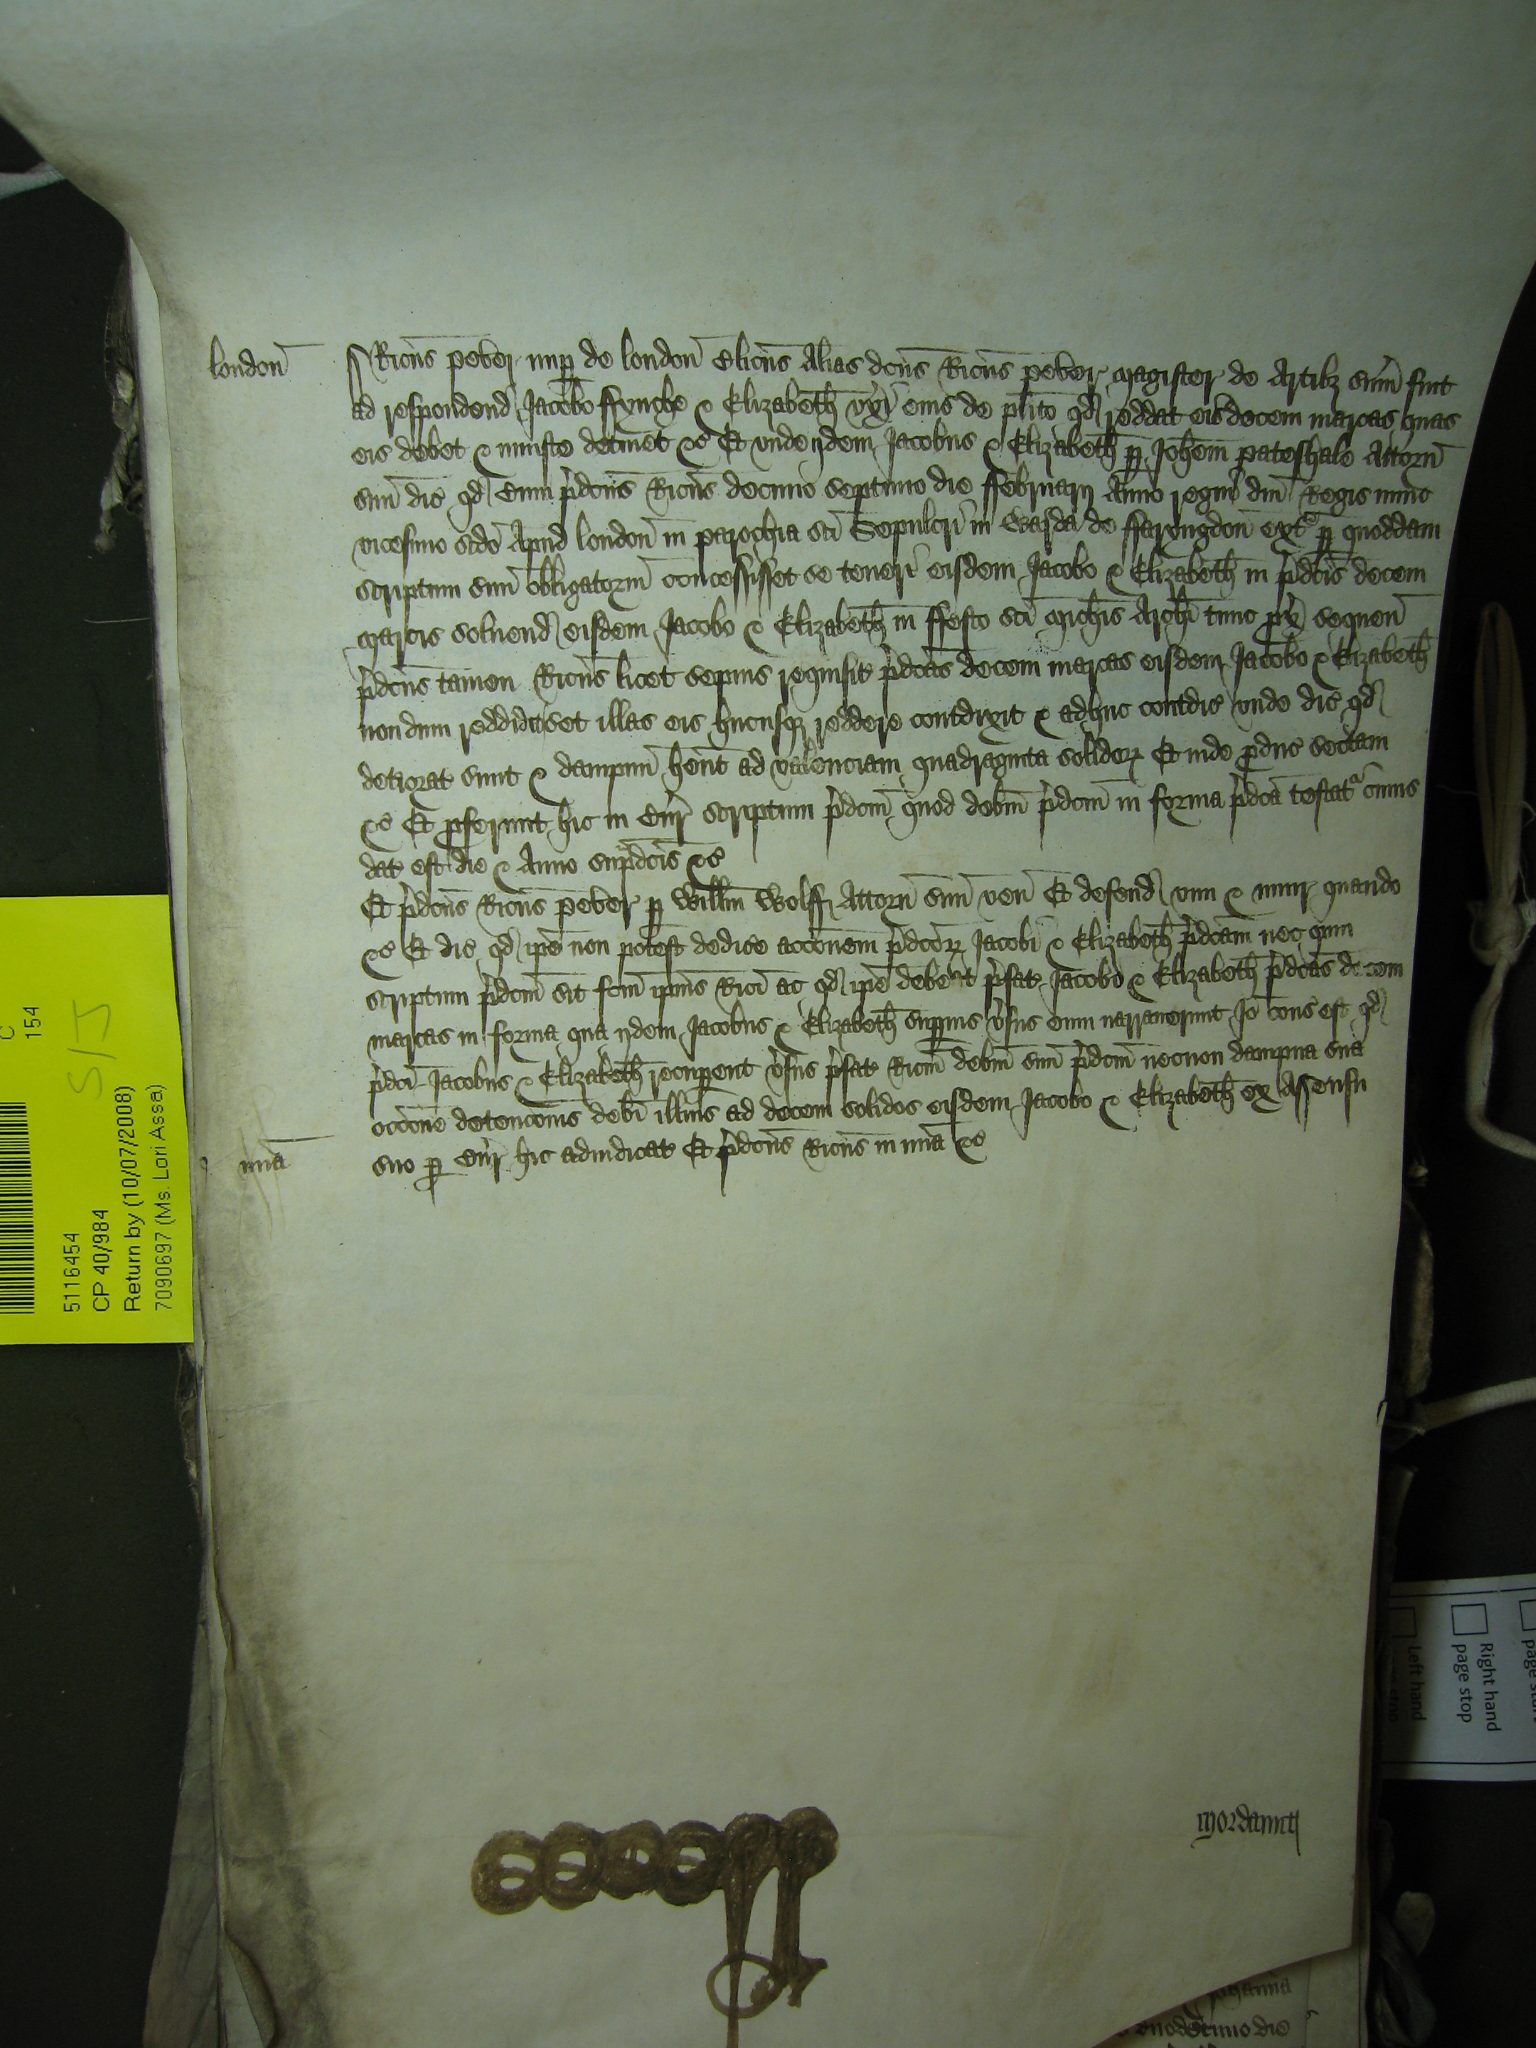 london
Ricūs peber nup de london Clicūs Alias dcūs Ricūs peber magister de Artibȝ sūm fuit
ad respondend Jacobo ffynche & Elizabeth vxi eius de plito qd reddat eis decem marcas quas
eis debet & iniuste detinet &c Et vnde ijdem Jacobus & Elizabeth p Johem pateshale Attorn
suū dic qd Cum p̄dcūs Ricūs decimo septimo die ffebruarij Anno regni dni Regis nunc
vicesimo scdo Apud london in parochia sci Sepulcri in Warda de ffaryngdon ext p quoddam
scriptum suū obligatoriū concessisset se teneri eisdem Jacobo & Elizabeth in p̄dcīs decem
marcis soluend eisdem Jacobo & Elizabeth in ffesto sci Michis Archi tunc px sequen
p̄dcūs tamen Ricūs licet sepius requisit p̄dcās decem marcas eisdem Jacobo & Elizabeth
nondum reddidisset illas eis hucusq reddere contdixit & adhuc contdic vnde dic qd
detiorat sunt & dampnū hent ad valenciam quadraginta solidoꝝ Et inde pduc sectam
&c Et proferunt hic in Cur scriptum p̄dcm quod debm p̄dcm in forma p̄dcā testat cuius
dat est die & Anno sup̄dcīs &c
Et p̄dcūs Ricūs peber p Willm Wolff Attorn suū ven Et defend vim & iniur quando
&c Et dic qd ip̄e non potest dedice accōnem p̄dcōꝝ Jacobi & Elizabeth p̄dcām nec quin
scriptum p̄dcm sit fcm ipius Rici ac qd ip̄e debet p̄fat Jacobo & Elizabeth p̄dcās decem
marcas in forma qua ijdem Jacobus & Elizabeth supius v̄sus eum narrauerunt Jo cons est qd
p̄dci Jacobus & Elizabeth recupent v̄sus p̄fat Ricm debm suū p̄dcm necnon dampna sua
occōne detencōnis debi illius ad decem solidos eisdem Jacobo & Elizabeth ex Assensu
mia
suo p Cur hic adiudicat Et p̄dcūs Ricūs in mia &c
mordaunt
C
154
S/J
5116454
CP 40/984
Return by (10/07/2008)
7090697 (Ms. Lori Assa)
Right hand
page stop
Left hand